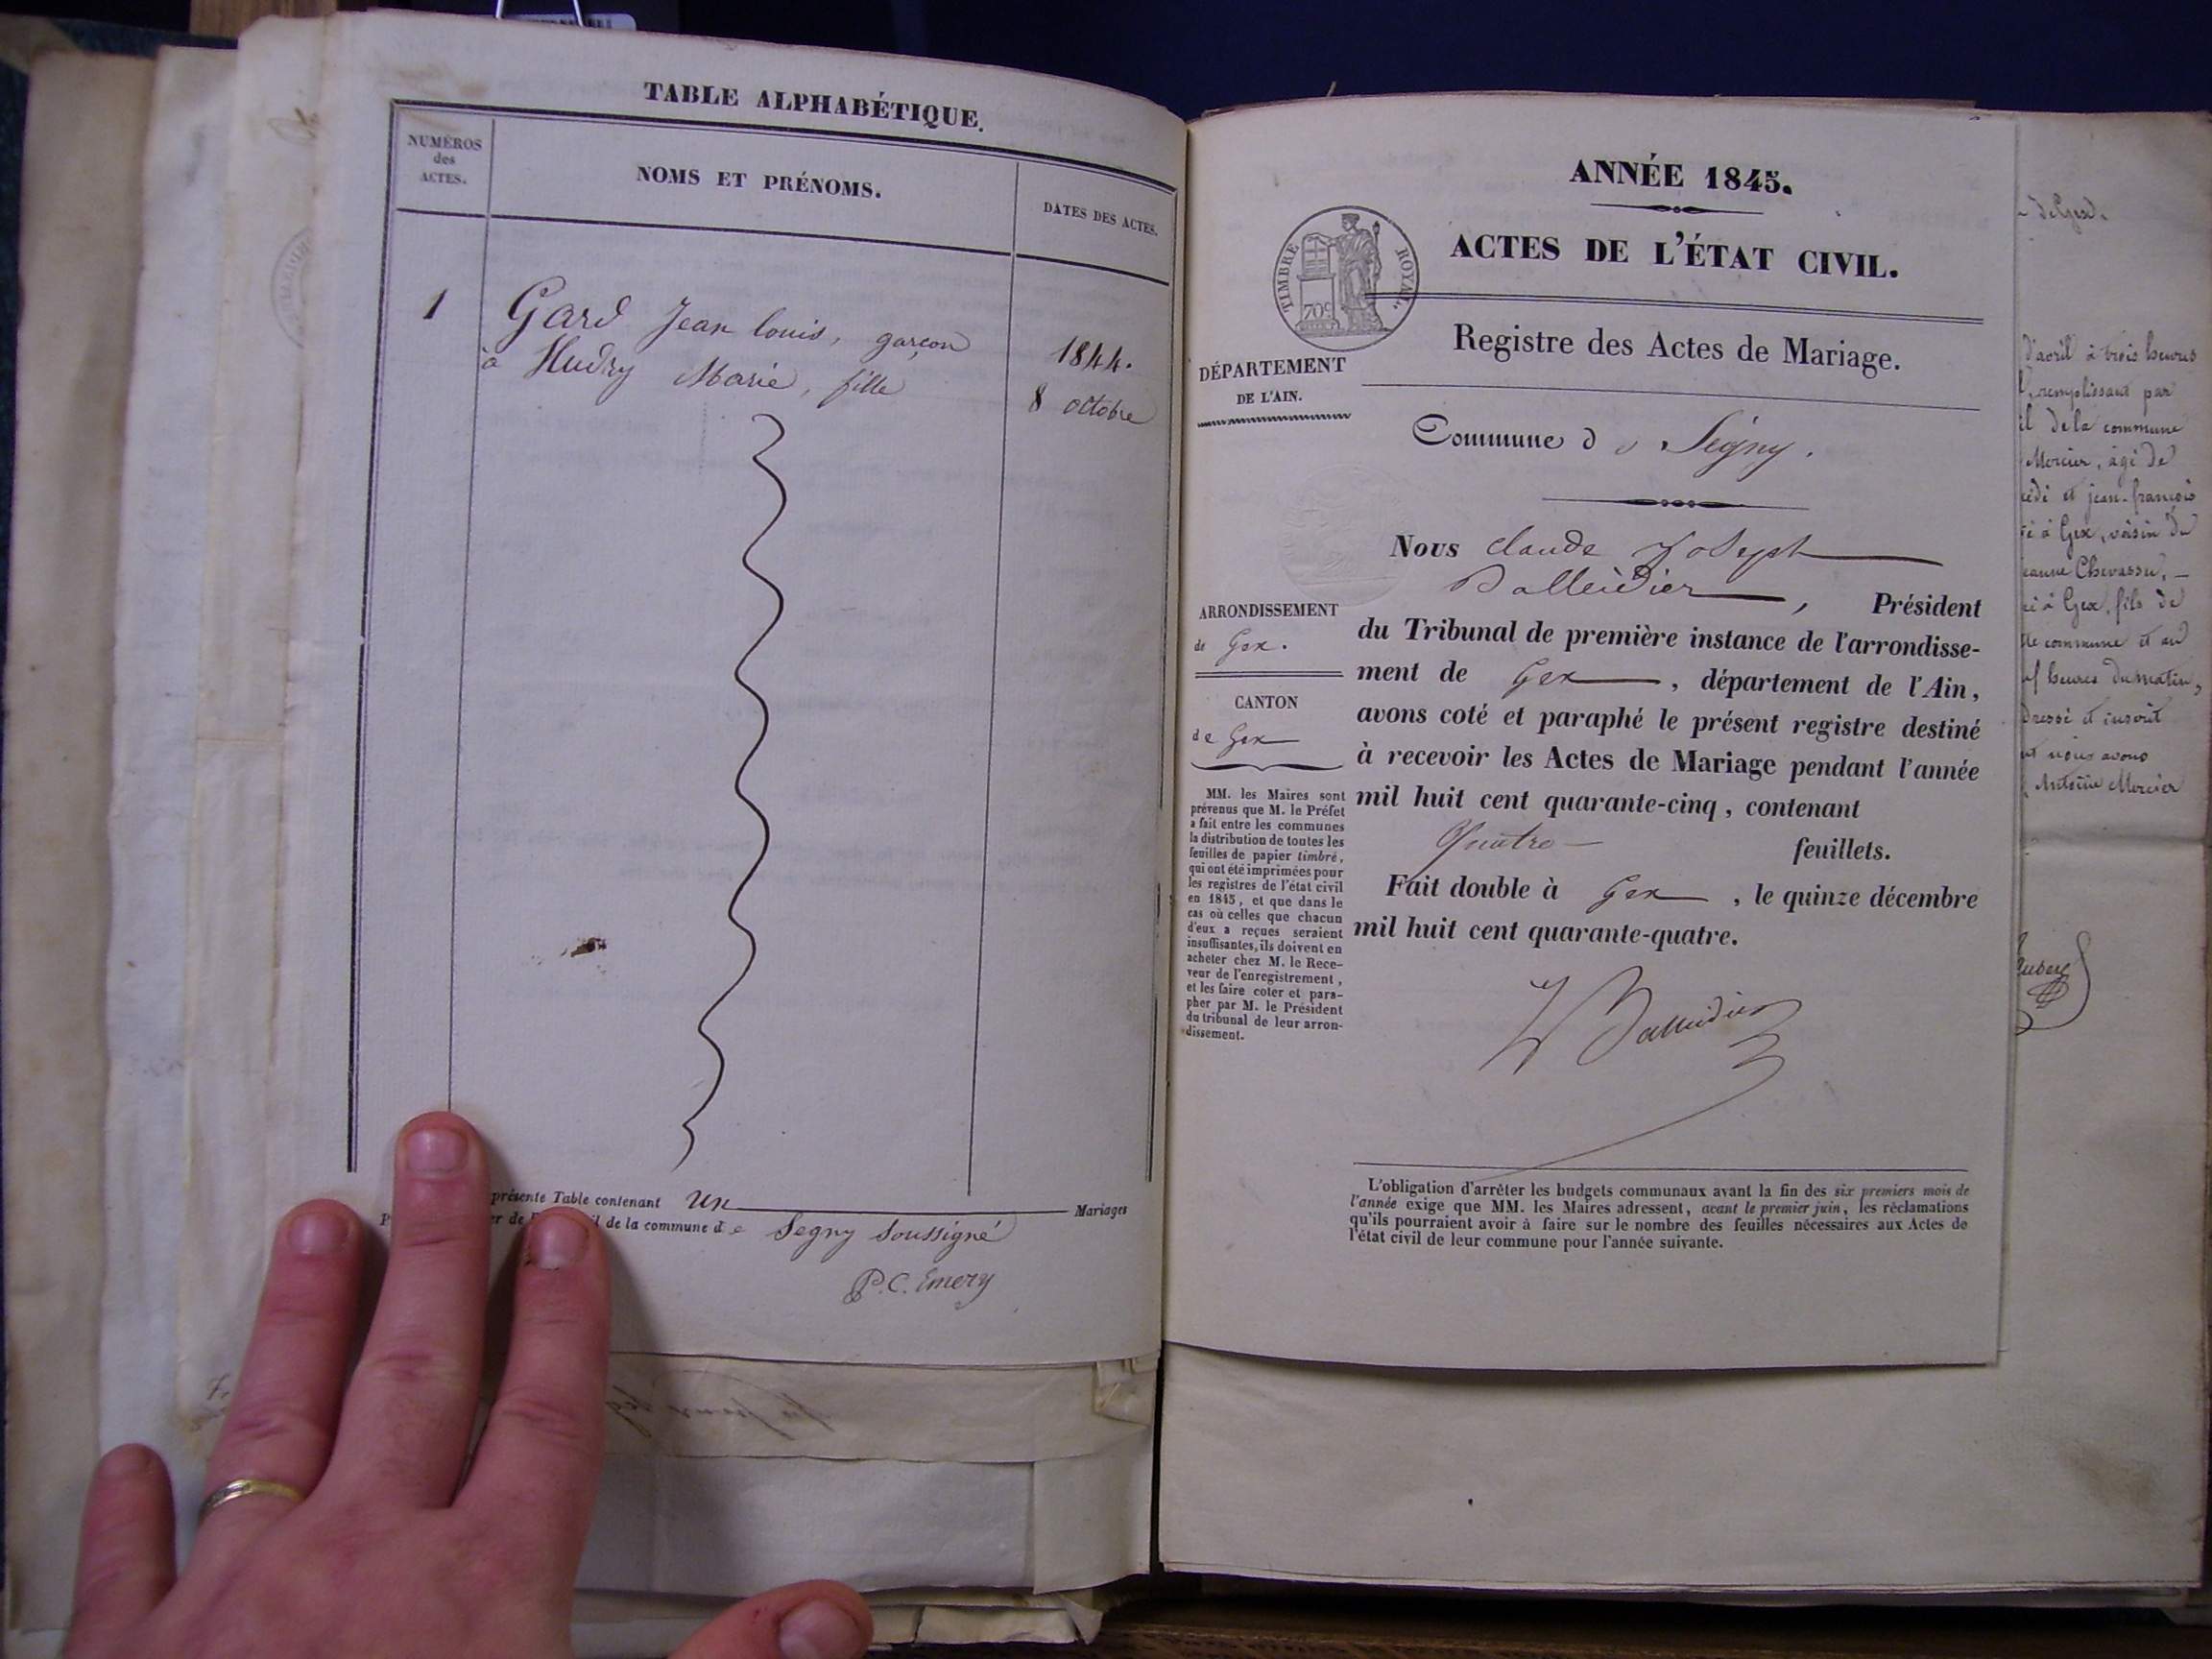 TABLE ALPHABÉTIQUE.
NUMÉROS
des
ACTES.
NOMS ET PRÉNOMS.
DATES DES ACTES.
1
Gard Jean louis, garçon
à Hudry Marie, fille
1844.
8 octobre
présente Table contenant Un Mariages
de la commune de Segny Soussigné
P.C. Emery
ANNÉE 1845.
ACTES DE L'ÉTAT CIVIL.
TIMBRE ROYAL.
70c
Registre des Actes de Mariage.
DÉPARTEMENT
DE L'AIN.
Commune d e Segny.
Nous Claude Joseph
Balleidier, Président
du Tribunal de première instance de l'arrondisse-
ment de Gex, département de l'Ain,
avons coté et paraphé le présent registre destiné
à recevoir les Actes de Mariage pendant l'année
mil huit cent quarante-cinq, contenant
Quatre feuillets.
Fait double à Gex, le quinze décembre
mil huit cent quarante-quatre.
Balleidier
ARRONDISSEMENT
de Gex.
CANTON
de Gex
MM. les Maires sont
prévenus que M. le Préfet
a fait entre les communes
la distribution de toutes les
feuilles de papier timbré,
qui ont été imprimées pour
les registres de l'état civil
en 1845, et que dans le
cas où celles que chacun
d'eux a reçues seraient
insuffisantes, ils doivent en
acheter chez M. le Rece-
veur de l'enregistrement,
et les faire coter et para-
pher par M. le Président
du tribunal de leur arron-
dissement.
L'obligation d'arrêter les budgets communaux avant la fin des six premiers mois de
l'année exige que MM. les Maires adressent, avant le premier juin, les réclamations
qu'ils pourraient avoir à faire sur le nombre des feuilles nécessaires aux Actes de
l'état civil de leur commune pour l'année suivante.
de Gex.
d'avril à trois heures
remplissant par
de la commune
Mercier, âgé de
et jean-françois
à Gex, voisin du
Chevassu,
à Gex, fils de
commune et au
heures du matin,
dressé et inscrit
nous avons
Antoine Mercier